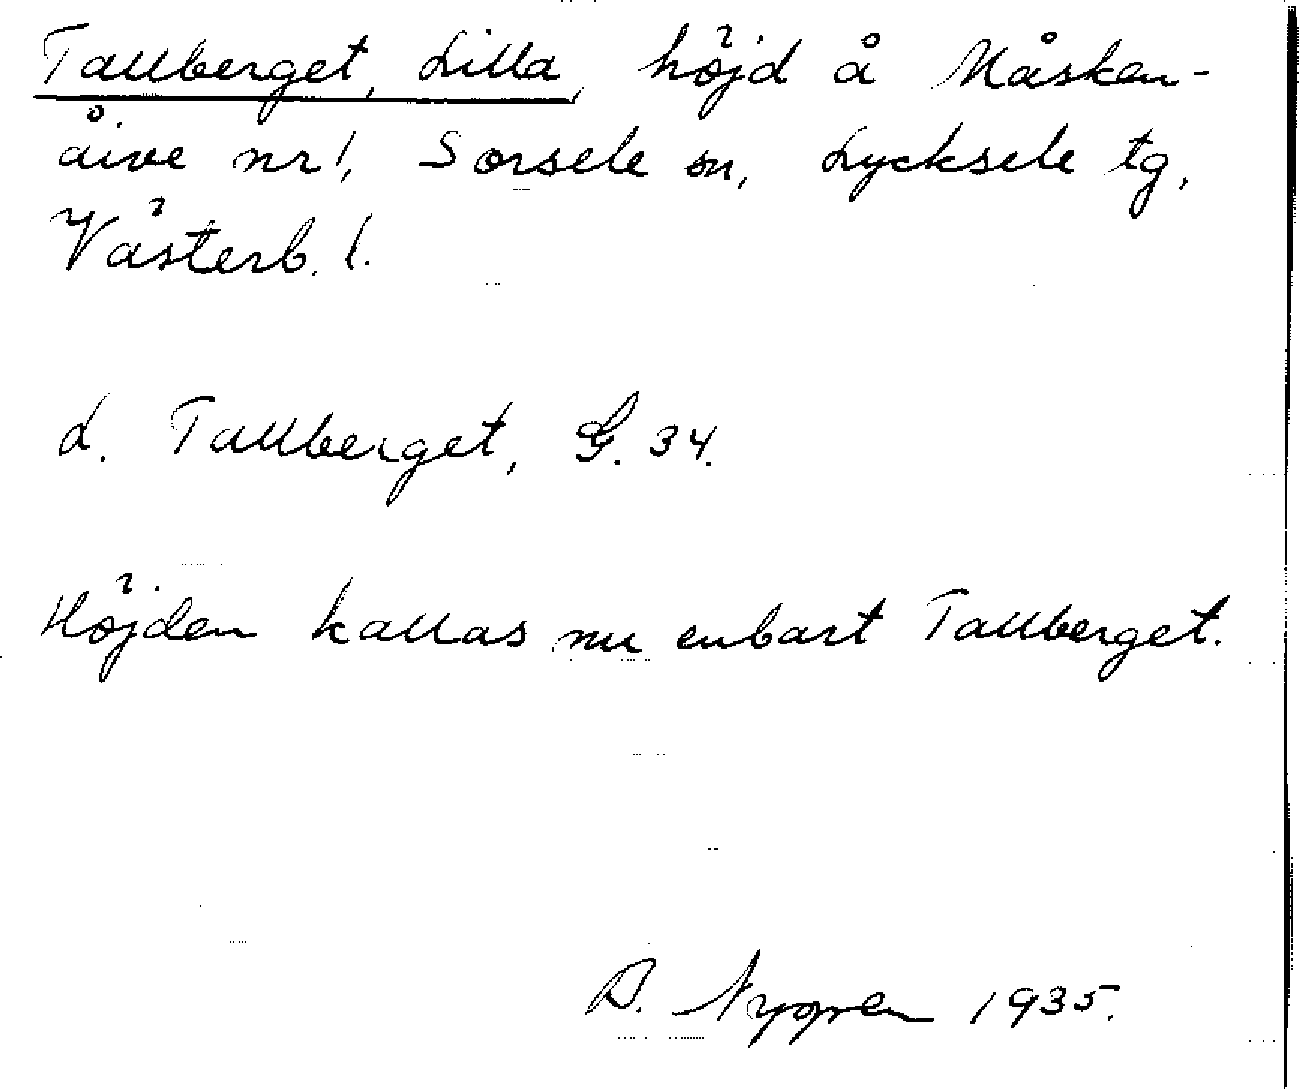 Tallberget, Lilla, höjd å Måsken-
åive nr 1, Sorsele sn, Lycksele tg,
Västerb. l.
L. Tallberget, G. 34.
Höjden kallas nu enbart Tallberget.
A. Nygren 1935.